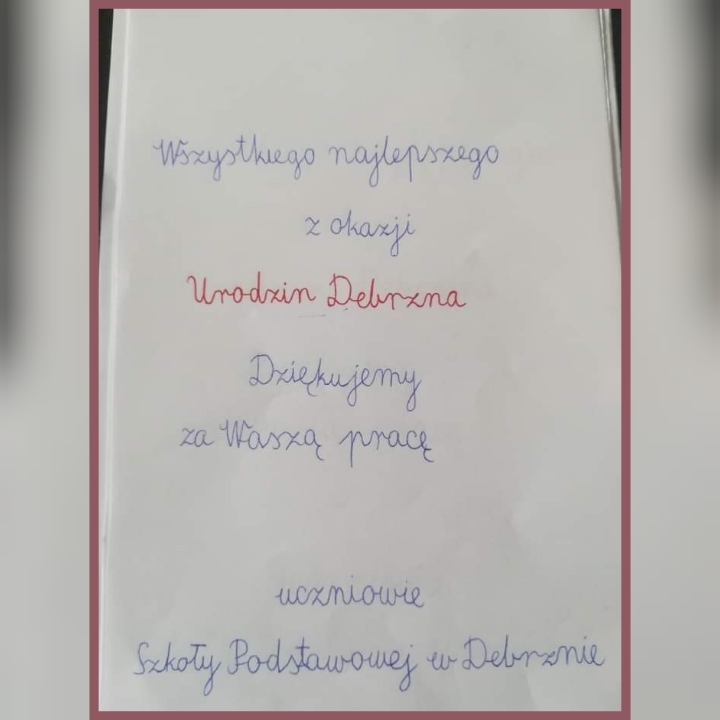 Wszystkiego najlepszego
z okazji
Urodzin Debrzna
Dziękujemy
za Waszą pracę
uczniowie
Szkoły Podstawowej w Debrznie